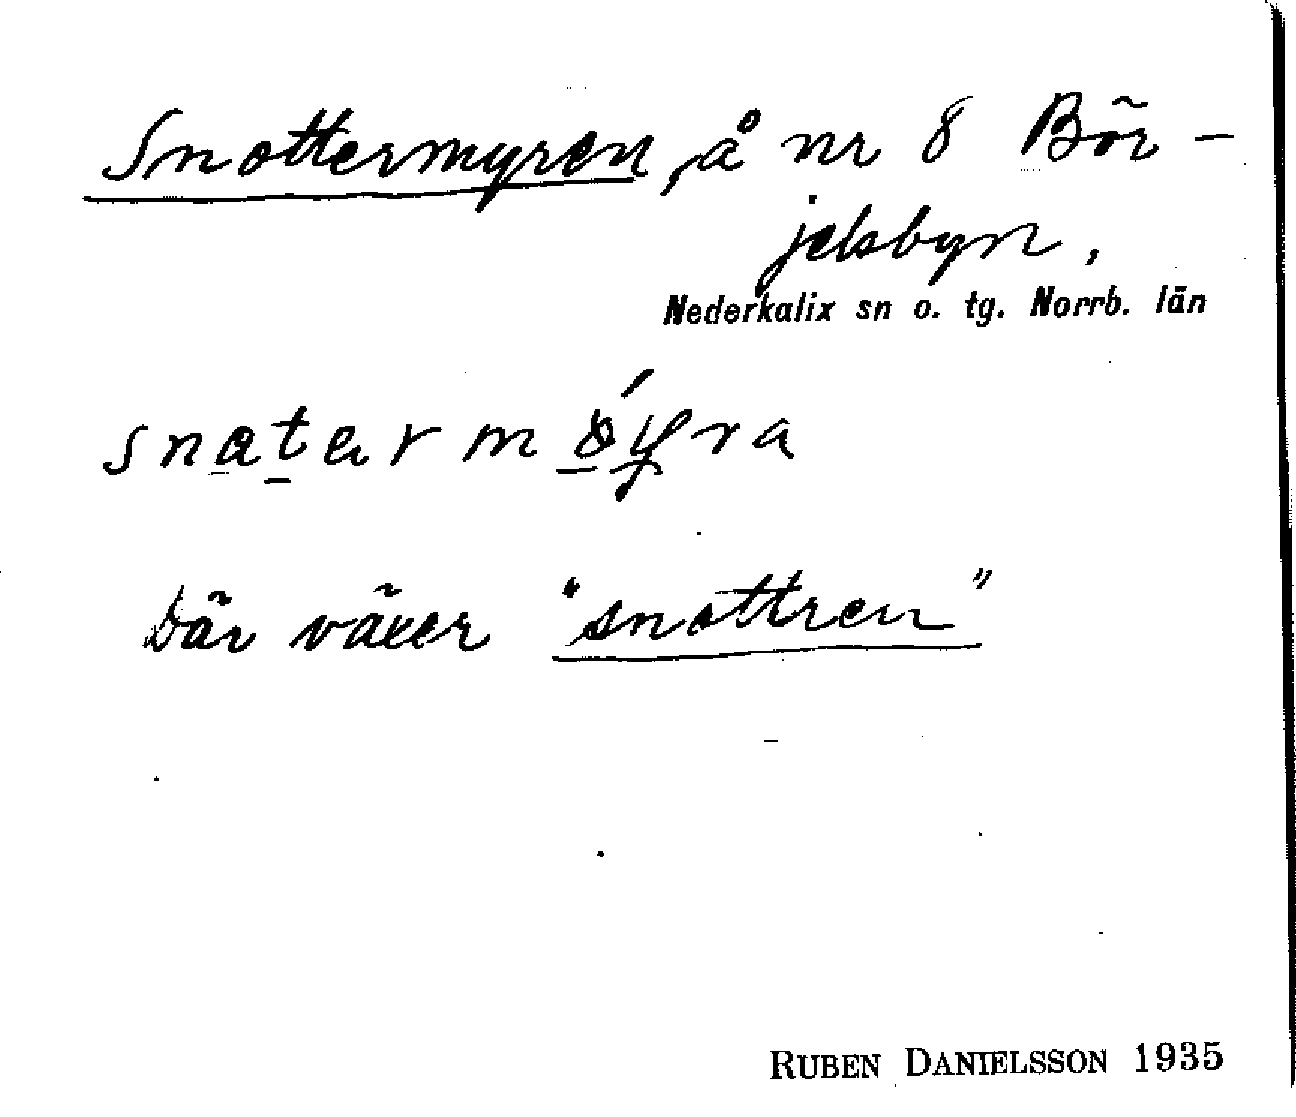 Snottermyren, å nr 8 Bör-
jelsbyn,
Nederkalix sn o. tg. Norrb. län
Där växer "snottren"
RUBEN DANIELSSON 1935